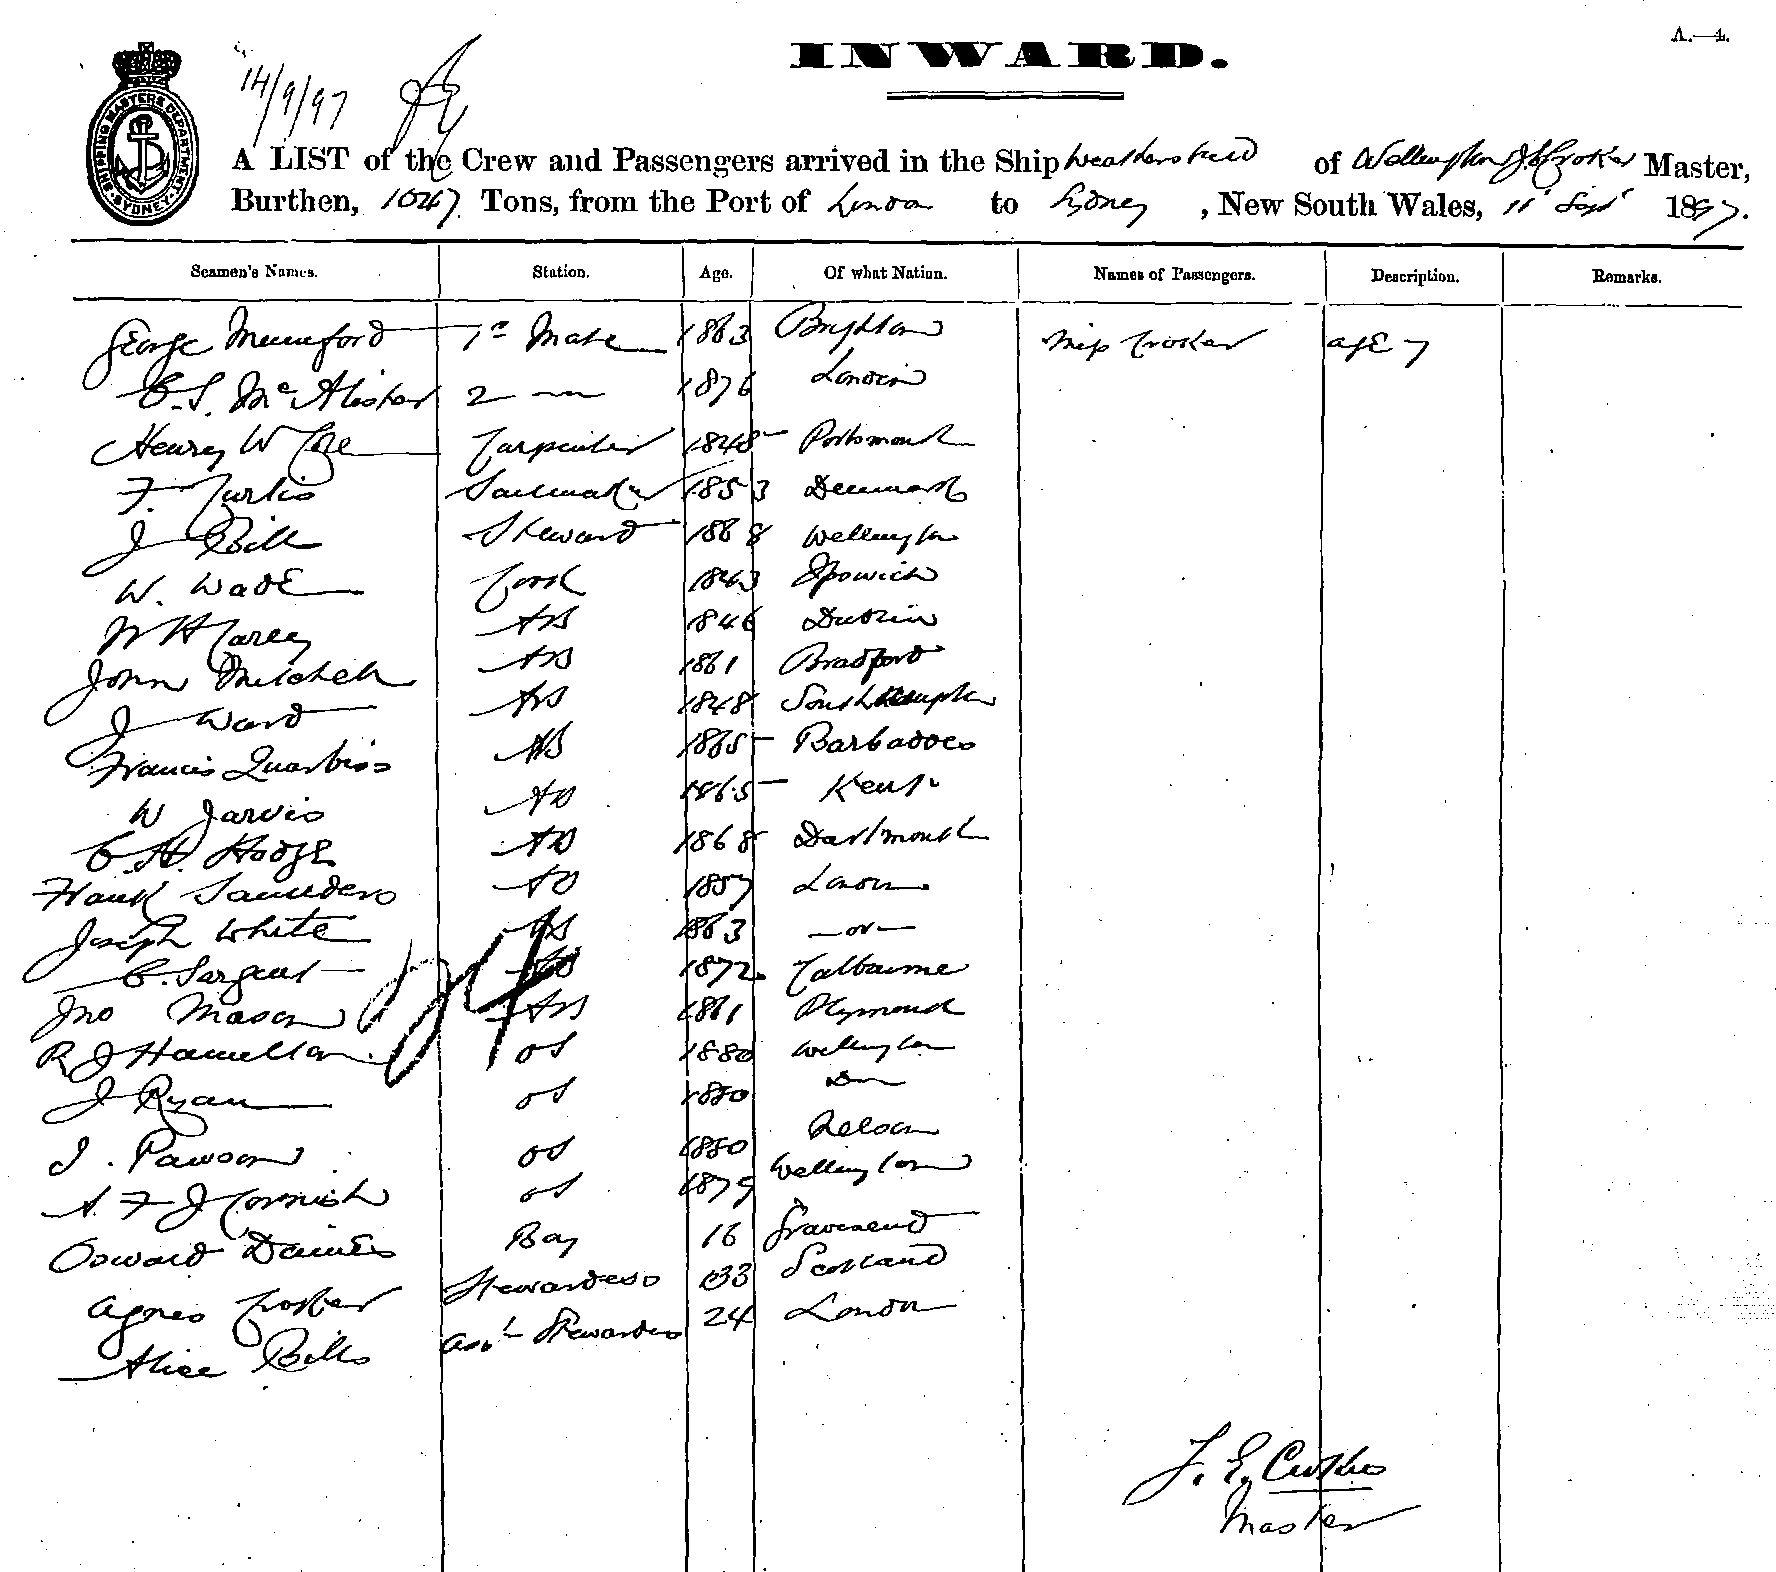 A.—4.
INWARD.
14/9/97
SHIPPING MASTERS DEPARTMENT SYDNEY
A LIST of the Crew and Passengers arrived in the Ship Weathersfield of Wellington J. E. Croker Master,
Burthen, 1047 Tons, from the Port of London to Sydney, New South Wales, 11 Sept 1897.
Seamen's Names. Station. Age. Of what Nation. Names of Passengers. Description. Remarks.
George Mumford 1st Mate 1863 Brighton Miss Croker age 7
C. S. McAlister 2 — 1876 London
Henry W Cole Carpenter 1845 Portsmouth
F. Curtis Sailmaker 1853 Denmark
J Bill Steward 1868 Wellington
W. Wade Cook 1843 Ipswich
W H Carey AB 1846 Dublin
John Mitchell AB 1861 Bradford
J Ward AB 1848 Southampton
Francis AB 1865 Barbadoes
W Jarvis AB 1865 Kent
C. H. Hodge AB 1868 Dartmouth
Frank Saunders AB 1857 London
Joseph White AB 1863 —do—
C. Sargent AB 1872
Jno Mason AB 1861 Plymouth
R J Hamilton OS 1880 Wellington
J Ryan OS 1880 Do
J. Pawson OS 1880 Nelson
A. F J Cornish OS 1879 Wellington
24
Osward Daines Boy 16 Gravesend
Agnes Croker Stewardess 33 Scotland
Alice Bills Asst Stewardess 24 London
J. E. Croker
Master